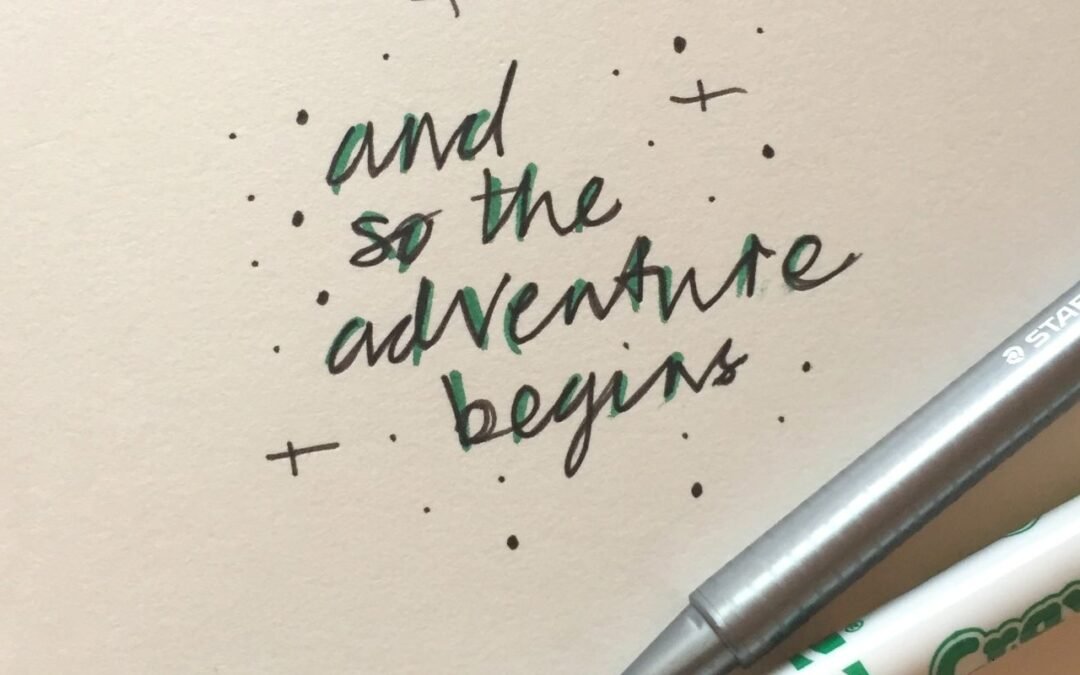 and
so the
adventure
begins
STAE
Cray